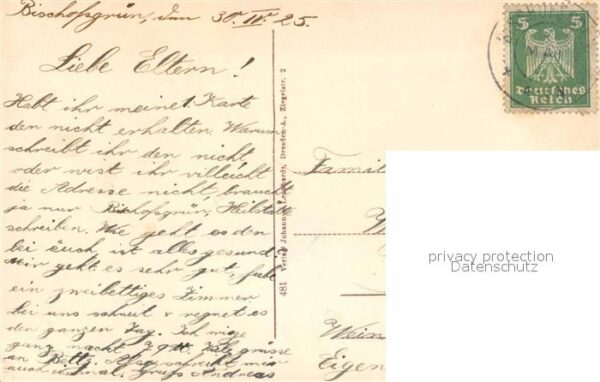 Bischofsgrün, den 30. IV. 25.
Liebe Eltern!
Hebt ihr meine 1. Karte
den nicht erhalten. Warum
schreibt ihr den nicht
oder wist ihr villeicht
die Adresse nicht, braucht
ja nur Bischofsgrün, Heilstätt
schreiben. Wie geht es den
bei euch ist alles gesund.
Mir geht es sehr gut, habe
ein zweibettiges Zimmer
bei uns schneit u regnet es
den ganzen Tag. Ich
ganz nacht Viele grüsse
an Betty. Also schreibt mir
auch einmal. Gruss Andreas
481 Verlag Johannes Leonhardi, Dresden-A., Ziegelstr. 2
5 5
Deutsches
Reich
Famil
Wein
Eigen
privacy protection
Datenschutz